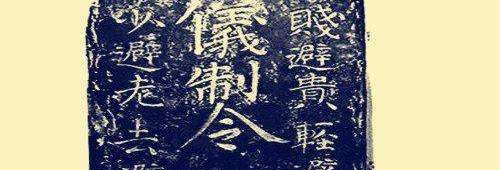 賤避貴輕避
儀制令
少避老去